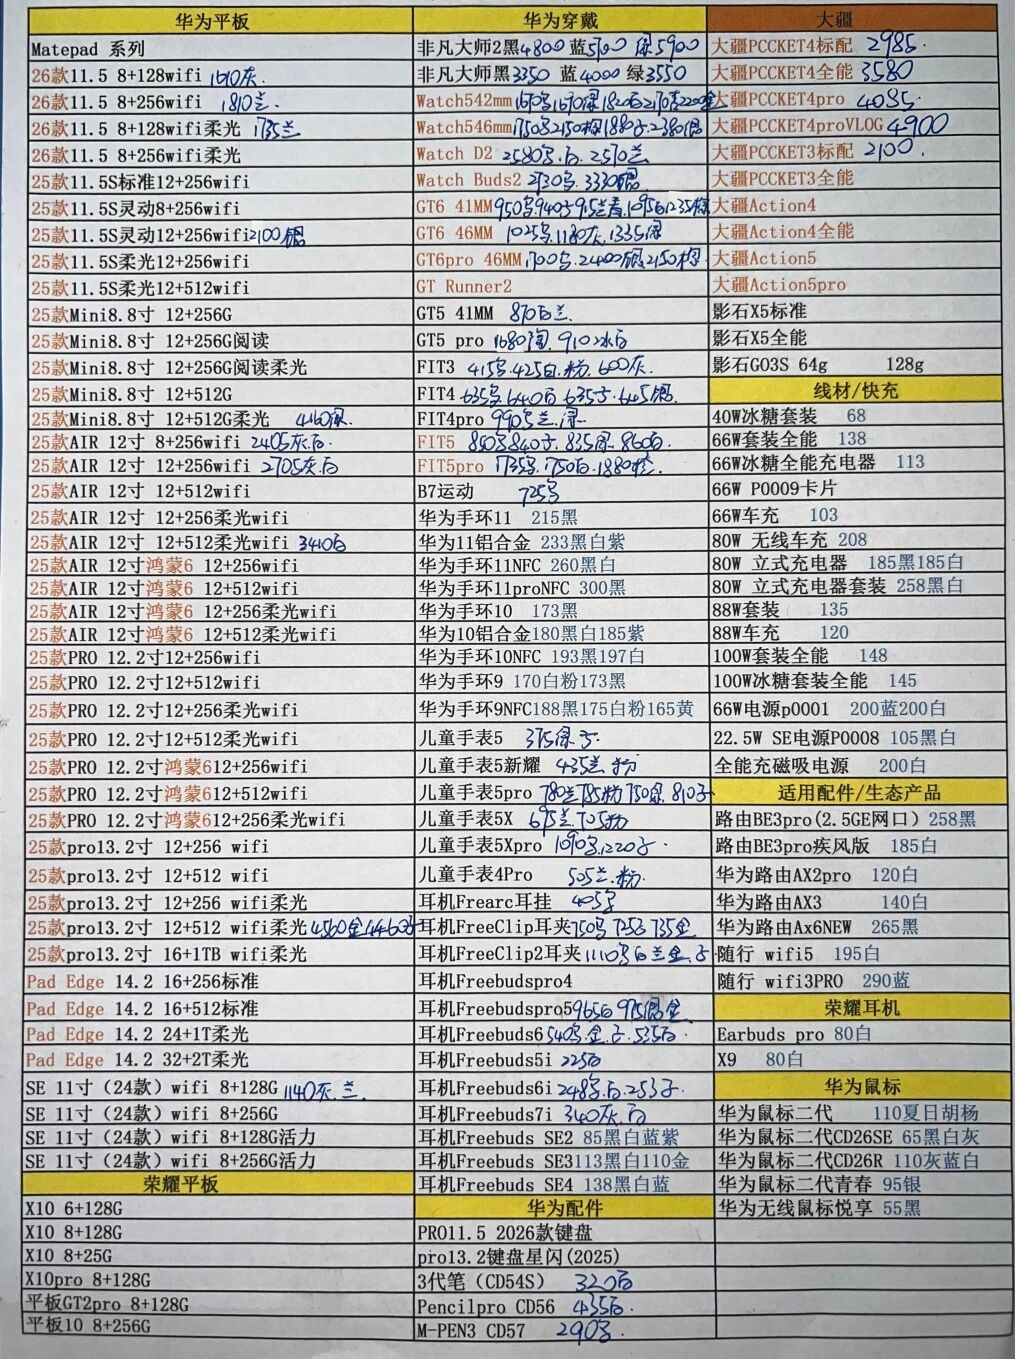 华为平板
Matepad 系列
26款11.5 8+128wifi 1610灰.
26款11.5 8+256wifi 1810兰.
26款11.5 8+128wifi柔光 1735兰
26款11.5 8+256wifi柔光
25款11.5S标准12+256wifi
25款11.5S灵动8+256wifi
25款11.5S灵动12+256wifi2100银
25款11.5S柔光12+256wifi
25款11.5S柔光12+512wifi
25款Mini8.8寸 12+256G
25款Mini8.8寸 12+256G阅读
25款Mini8.8寸 12+256G阅读柔光
25款Mini8.8寸 12+512G
25款Mini8.8寸 12+512G柔光 4160绿.
25款AIR 12寸 8+256wifi 2405灰白.
25款AIR 12寸 12+256wifi 2705灰白
25款AIR 12寸 12+512wifi
25款AIR 12寸 12+256柔光wifi
25款AIR 12寸 12+512柔光wifi 3410白
25款AIR 12寸鸿蒙6 12+256wifi
25款AIR 12寸鸿蒙6 12+512wifi
25款AIR 12寸鸿蒙6 12+256柔光wifi
25款AIR 12寸鸿蒙6 12+512柔光wifi
25款PRO 12.2寸12+256wifi
25款PRO 12.2寸12+512wifi
25款PRO 12.2寸12+256柔光wifi
25款PRO 12.2寸12+512柔光wifi
25款PRO 12.2寸鸿蒙612+256wifi
25款PRO 12.2寸鸿蒙612+512wifi
25款PRO 12.2寸鸿蒙612+256柔光wifi
25款pro13.2寸 12+256 wifi
25款pro13.2寸 12+512 wifi
25款pro13.2寸 12+256 wifi柔光
25款pro13.2寸 12+512 wifi柔光4560金4460子
25款pro13.2寸 16+1TB wifi柔光
Pad Edge 14.2 16+256标准
Pad Edge 14.2 16+512标准
Pad Edge 14.2 24+1T柔光
Pad Edge 14.2 32+2T柔光
SE 11寸（24款）wifi 8+128G 1140灰.兰.
SE 11寸（24款）wifi 8+256G
SE 11寸（24款）wifi 8+128G活力
SE 11寸（24款）wifi 8+256G活力
荣耀平板
X10 6+128G
X10 8+128G
X10 8+25G
X10pro 8+128G
平板GT2pro 8+128G
平板10 8+256G
华为穿戴
非凡大师2黑4800 蓝5700 绿5900
非凡大师黑3350 蓝4000 绿3550
Watch542mm 1670黑1670绿1820白2170青2200金
Watch546mm1750黑2150棕1880子.2380银
Watch D2 2580黑.白.2570兰
Watch Buds2 2930黑.3330银.
GT6 41MM950黑940子915兰青.1095白1235棕
GT6 46MM 1025黑.1180灰.1335绿
GT6pro 46MM1700黑.2400银2150棕.
GT Runner2
GT5 41MM 870白兰.
GT5 pro 1680陶.910冰白
FIT3 415黑.425白.粉.600灰.
FIT4 635黑.640白 635子.645银.
FIT4pro 990黑兰.绿.
FIT5 850黑840子.835绿.860白.
FIT5pro 1735黑.1750白.1880橙.
B7运动 725黑
华为手环11 215黑
华为11铝合金 233黑白紫
华为手环11NFC 260黑白
华为手环11proNFC 300黑
华为手环10 173黑
华为10铝合金180黑白185紫
华为手环10NFC 193黑197白
华为手环9 170白粉173黑
华为手环9NFC188黑175白粉165黄
儿童手表5 375绿子.
儿童手表5新耀 435兰粉
儿童手表5pro 780兰785粉750绿.810子
儿童手表5X 695兰.705粉
儿童手表5Xpro 1090黑.1220子.
儿童手表4Pro 505兰.粉.
耳机Frearc耳挂 405黑
耳机FreeClip耳夹750黑 725子735金.
耳机FreeClip2耳夹1110黑白兰金.子.
耳机Freebudspro4
耳机Freebudspro5965白975银金.
耳机Freebuds6 540黑.金.子.535白.
耳机Freebuds5i 225白
耳机Freebuds6i 248黑.白.253子.
耳机Freebuds7i 340灰.白
耳机Freebuds SE2 85黑白蓝紫
耳机Freebuds SE3113黑白110金
耳机Freebuds SE4 138黑白蓝
华为配件
PRO11.5 2026款键盘
pro13.2键盘星闪(2025)
3代笔（CD54S） 320白
Pencilpro CD56 435白.
M-PEN3 CD57 290黑.
大疆
大疆PCCKET4标配 2985.
大疆PCCKET4全能 3580
大疆PCCKET4pro 4085.
大疆PCCKET4proVLOG4900
大疆PCCKET3标配 2100.
大疆PCCKET3全能
大疆Action4
大疆Action4全能
大疆Action5
大疆Action5pro
影石X5标准
影石X5全能
影石GO3S 64g 128g
线材/快充
40W冰糖套装 68
66W套装全能 138
66W冰糖全能充电器 113
66W P0009卡片
66W车充 103
80W 无线车充 208
80W 立式充电器 185黑185白
80W 立式充电器套装 258黑白
88W套装 135
88W车充 120
100W套装全能 148
100W冰糖套装全能 145
66W电源p0001 200蓝200白
22.5W SE电源P0008 105黑白
全能充磁吸电源 200白
适用配件/生态产品
路由BE3pro(2.5GE网口）258黑
路由BE3pro疾风版 185白
华为路由AX2pro 120白
华为路由AX3 140白
华为路由Ax6NEW 265黑
随行 wifi5 195白
随行 wifi3PRO 290蓝
荣耀耳机
Earbuds pro 80白
X9 80白
华为鼠标
华为鼠标二代 110夏日胡杨
华为鼠标二代CD26SE 65黑白灰
华为鼠标二代CD26R 110灰蓝白
华为鼠标二代青春 95银
华为无线鼠标悦享 55黑